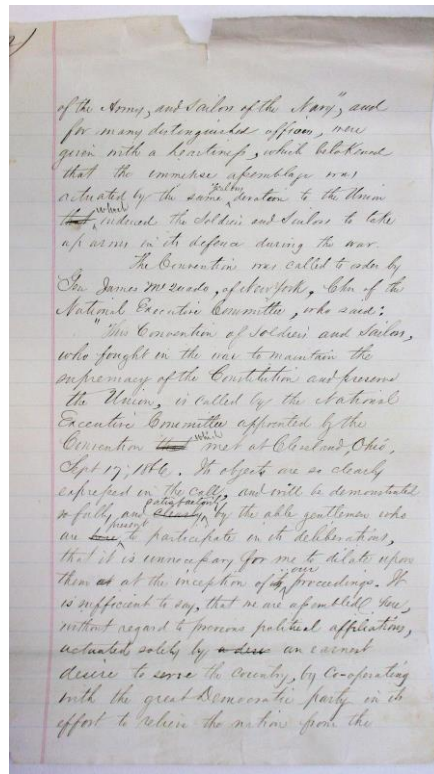 of the Army, and Sailors of the Navy", and
for many distinguished officers, were
given with a heartiness, which betokened
that the immense assemblage was
actuated by the same devotion to the Union
that which induced the Soldiers and Sailors to take
up arms in its defence during the war.
The Convention was called to order by
Gen James McQuade, of New York, Chn of the
National Executive Committee, who said:
"This Convention of Soldiers and Sailors,
who fought in the war to maintain the
supremacy of the Constitution and preserve
the Union, is called by the National
Executive Committee appointed by the
Convention that which met at Cleveland, Ohio,
Sept 17, 1866. It objects are so clearly
expressed in the call, and will be demonstrated
so fully, and clearly satisfactorily by the able gentlemen who
are here present to participate in its deliberations,
that it is unnecessary for me to dilate upon
them at at the inception of its our proceedings. It
is sufficient to say, that we are assembled here,
without regard to previous political affiliations,
actuated solely by a desire an earnest
desire to serve the country, by co-operating
with the great Democratic party in its
effort to relieve the nation from the